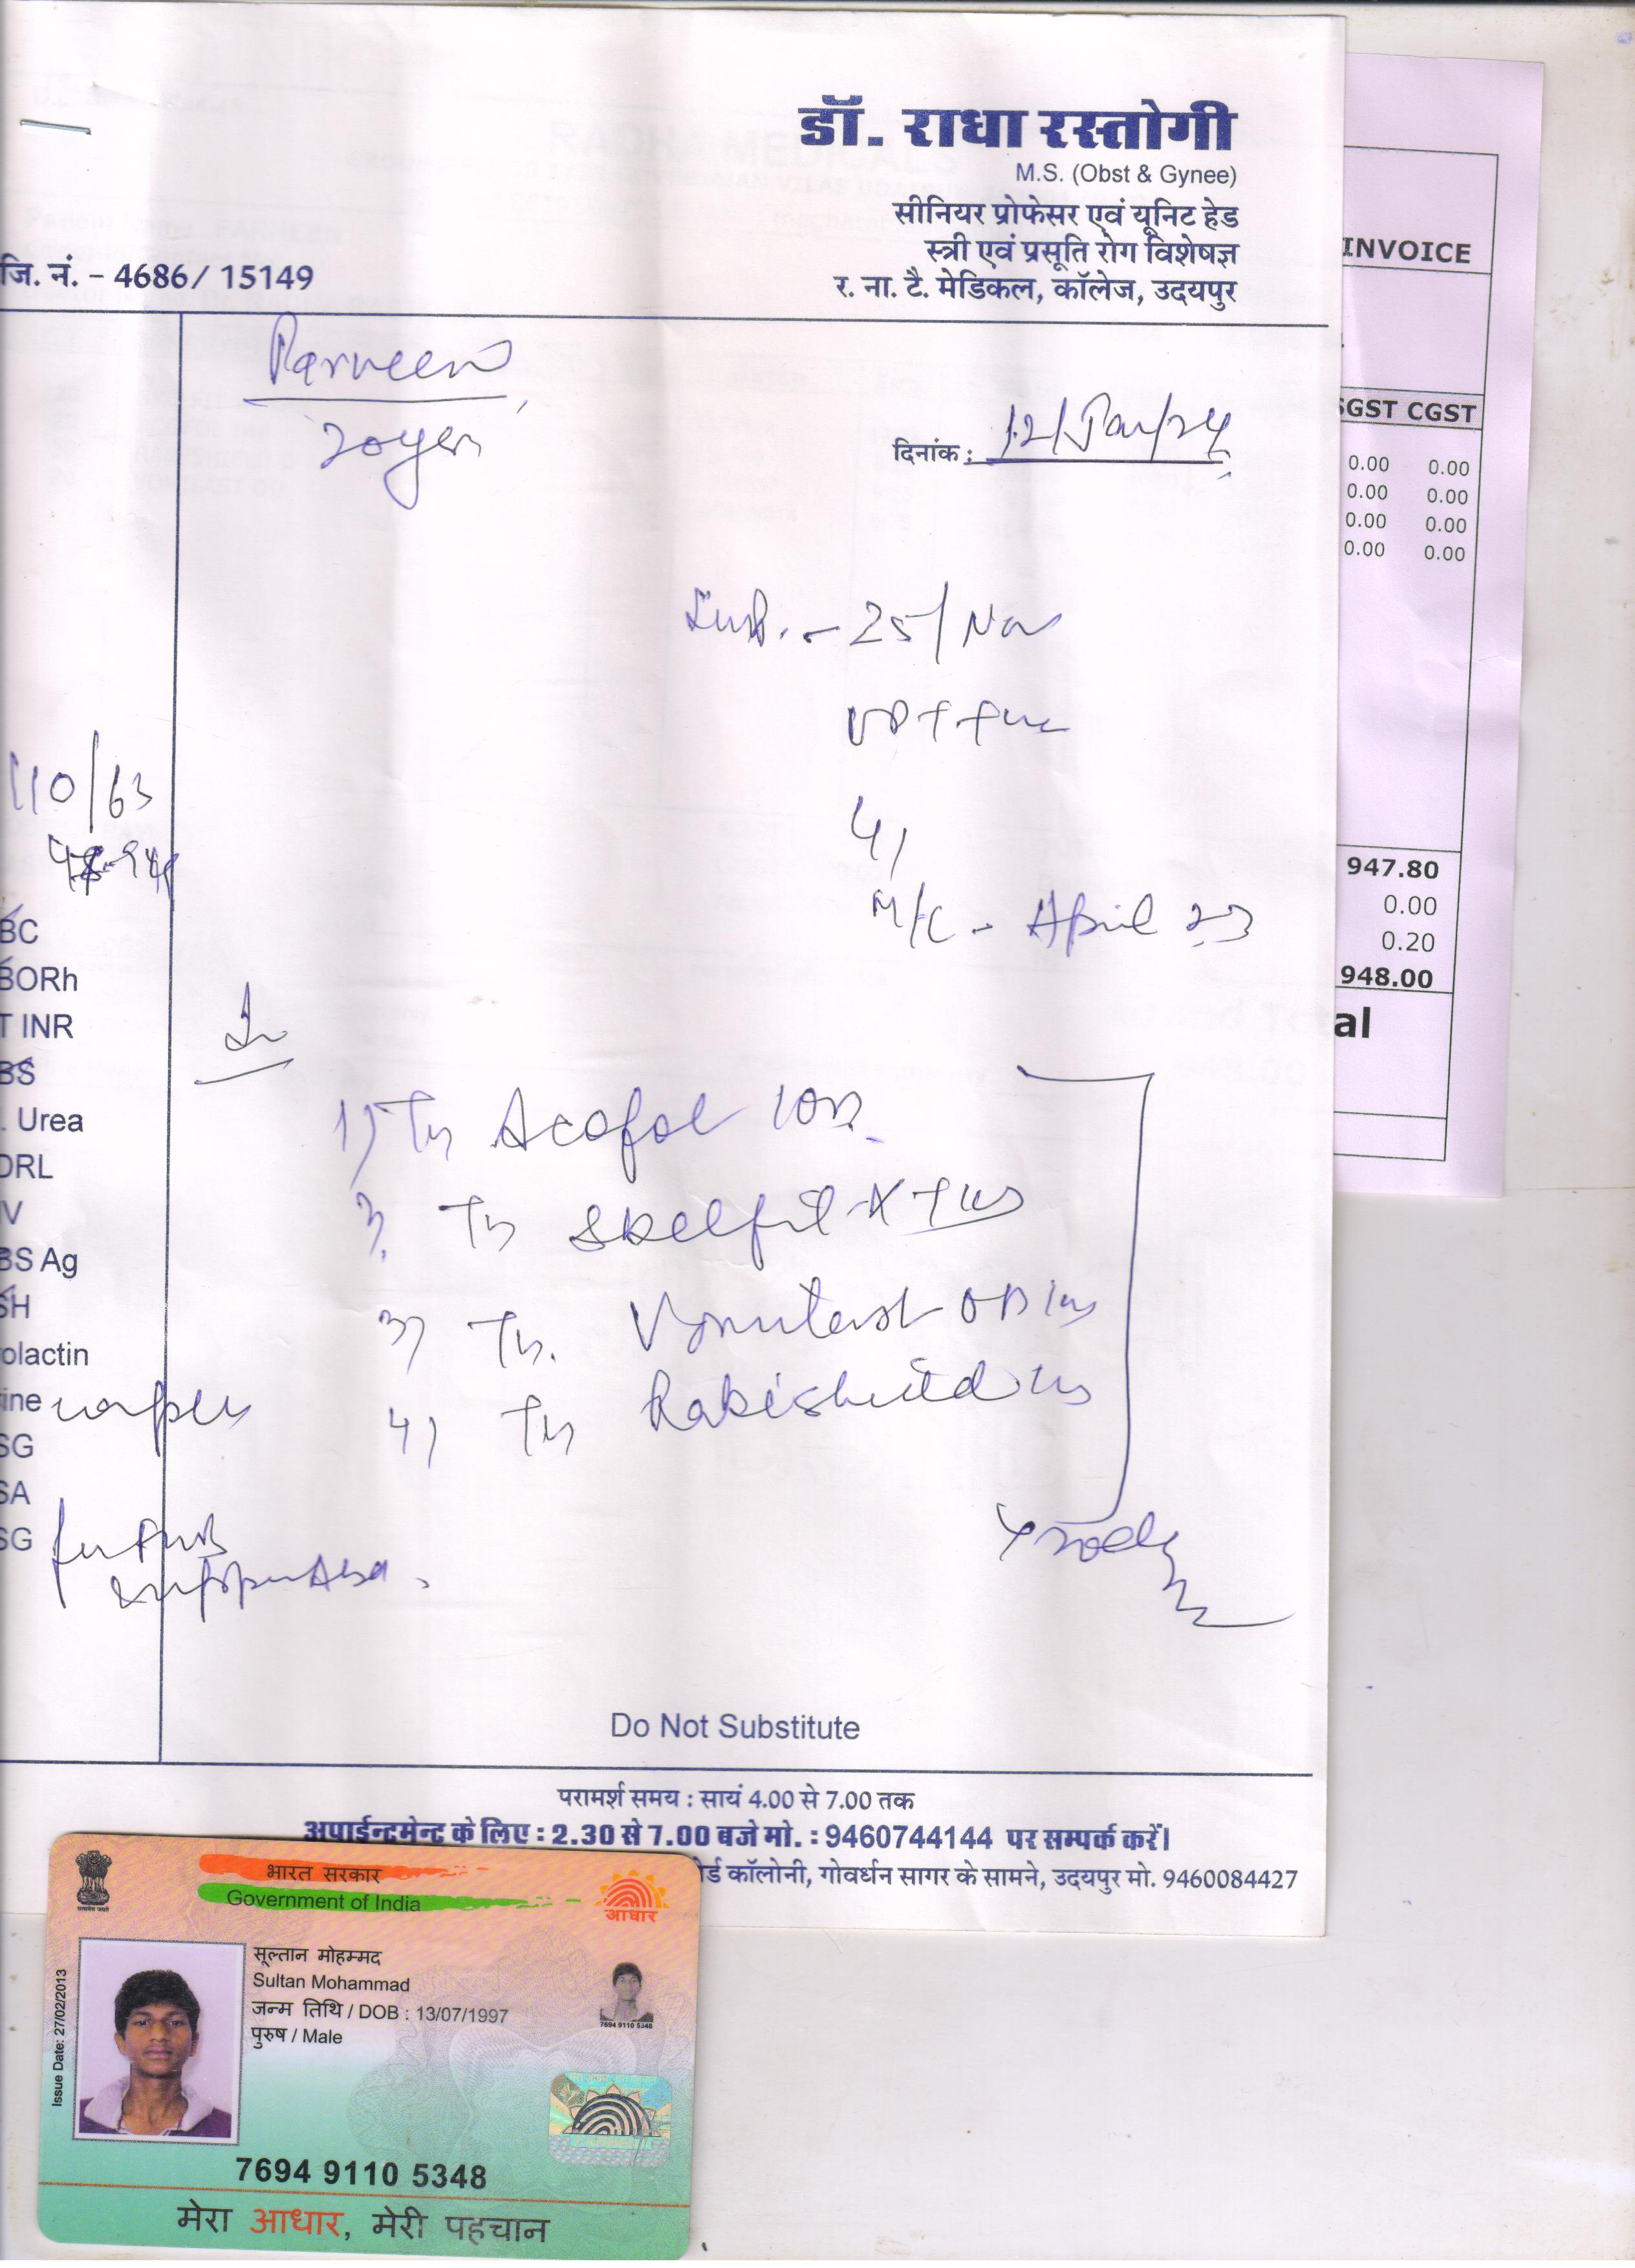 डॉ. राधा रस्तोगी
M.S. (Obst & Gynee)
सीनियर प्रोफेसर एवं यूनिट हेड
स्त्री एवं प्रसूति रोग विशेषज्ञ
र. ना. टै. मेडिकल, कॉलेज, उदयपुर
जि. नं. - 4686/ 15149
Parneen
दिनांक : 12/Jan/24
25/Nov
110/63
M/C - April 23
BC
BORh
T INR
BS
. Urea
DRL
IV
BS Ag
SH
olactin
ine
SG
SA
SG
1) Acofol
Skelfit
3) Vomitast OD
4) Rabishield
Do Not Substitute
परामर्श समय : सायं 4.00 से 7.00 तक
अपाईन्टमेन्ट के लिए : 2.30 से 7.00 बजे मो. : 9460744144 पर सम्पर्क करें।
र्ड कॉलोनी, गोवर्धन सागर के सामने, उदयपुर मो. 9460084427
INVOICE
SGST CGST
0.00 0.00
0.00 0.00
0.00 0.00
0.00 0.00
947.80
0.00
0.20
948.00
al
भारत सरकार
Government of India
आधार
सूल्तान मोहम्मद
Sultan Mohammad
जन्म तिथि / DOB : 13/07/1997
पुरुष / Male
Issue Date: 27/02/2013
7694 9110 5348
7694 9110 5348
मेरा आधार, मेरी पहचान